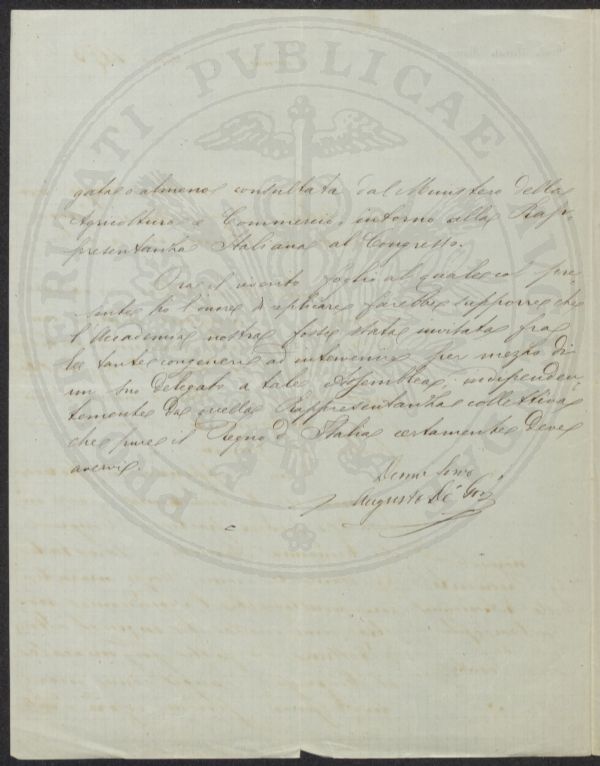 PROSPERITATI PVBLICAE
gata o almeno consultata dal Ministero della
Agricoltura e Commercio, intorno alla Rap-
presentanza Italiana al Congresso.
Ora il foglio al quale col pre-
sente ho l'onore di replicare farebbe supporre che
l'Accademia nostra fosse stata invitata fra
le tante congeneri ad intervenire per mezzo di
un suo delegato a tale Assemblea, independen-
temente da quella Rappresentanza collettiva
che pure il Regno d'Italia certamente deve
avervi.
Augusto De' Gori